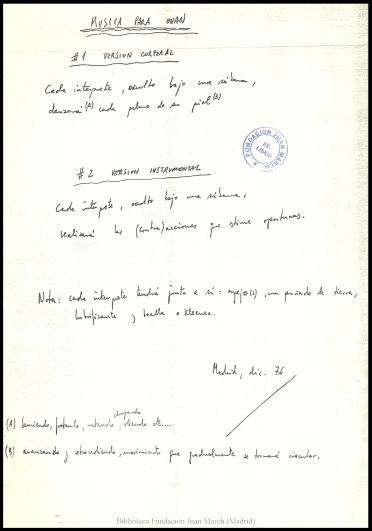 MUSICA PARA ONAN
#1 VERSION CORPORAL
Cada intérprete, oculto bajo una sábana,
danzará (A) cada palmo de su piel (B)
FUNDACION JUAN MARCH
#2 VERSION INSTRUMENTAL
Cada intérprete, oculto bajo una sábana,
realizará las (contra)acciones que estime oportunas.
Nota: cada intérprete tendrá junto a sí: espejo(s), un puñado de tierra,
lubrificante y toalla o kleenex.
Madrid, dic. 76
chupando
(A) lamiendo, frotando, etc....
(B) avanzando y retrocediendo, movimiento que gradualmente se tornará circular.
Biblioteca Fundación Juan March (Madrid)